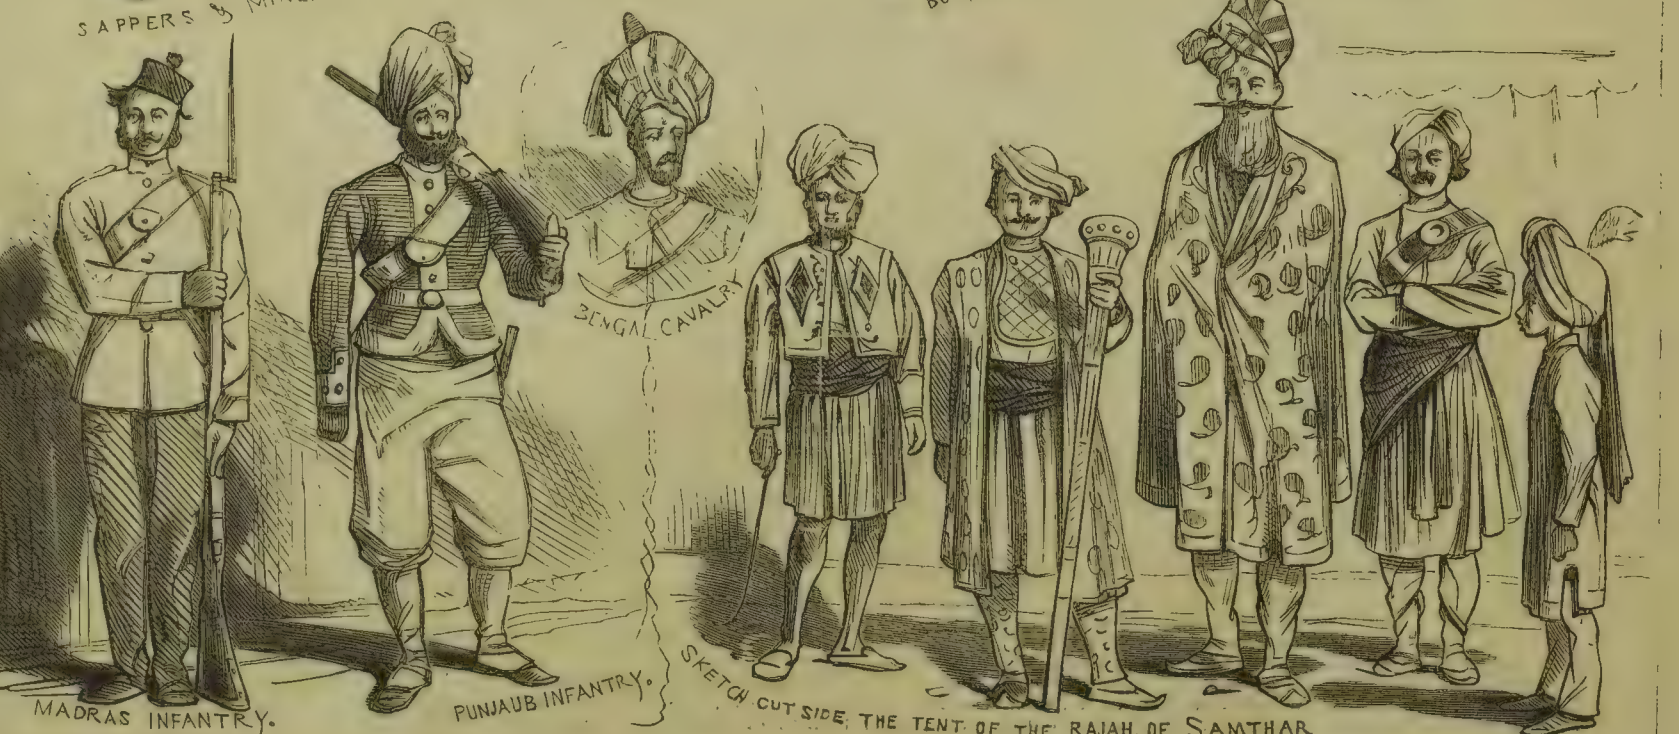 SAPPERS &
BENGAL CAVALRY
MADRAS INFANTRY.
PUNJAUB INFANTRY.
SKETCH OUTSIDE THE TENT OF THE RAJAH OF SAMTHAR